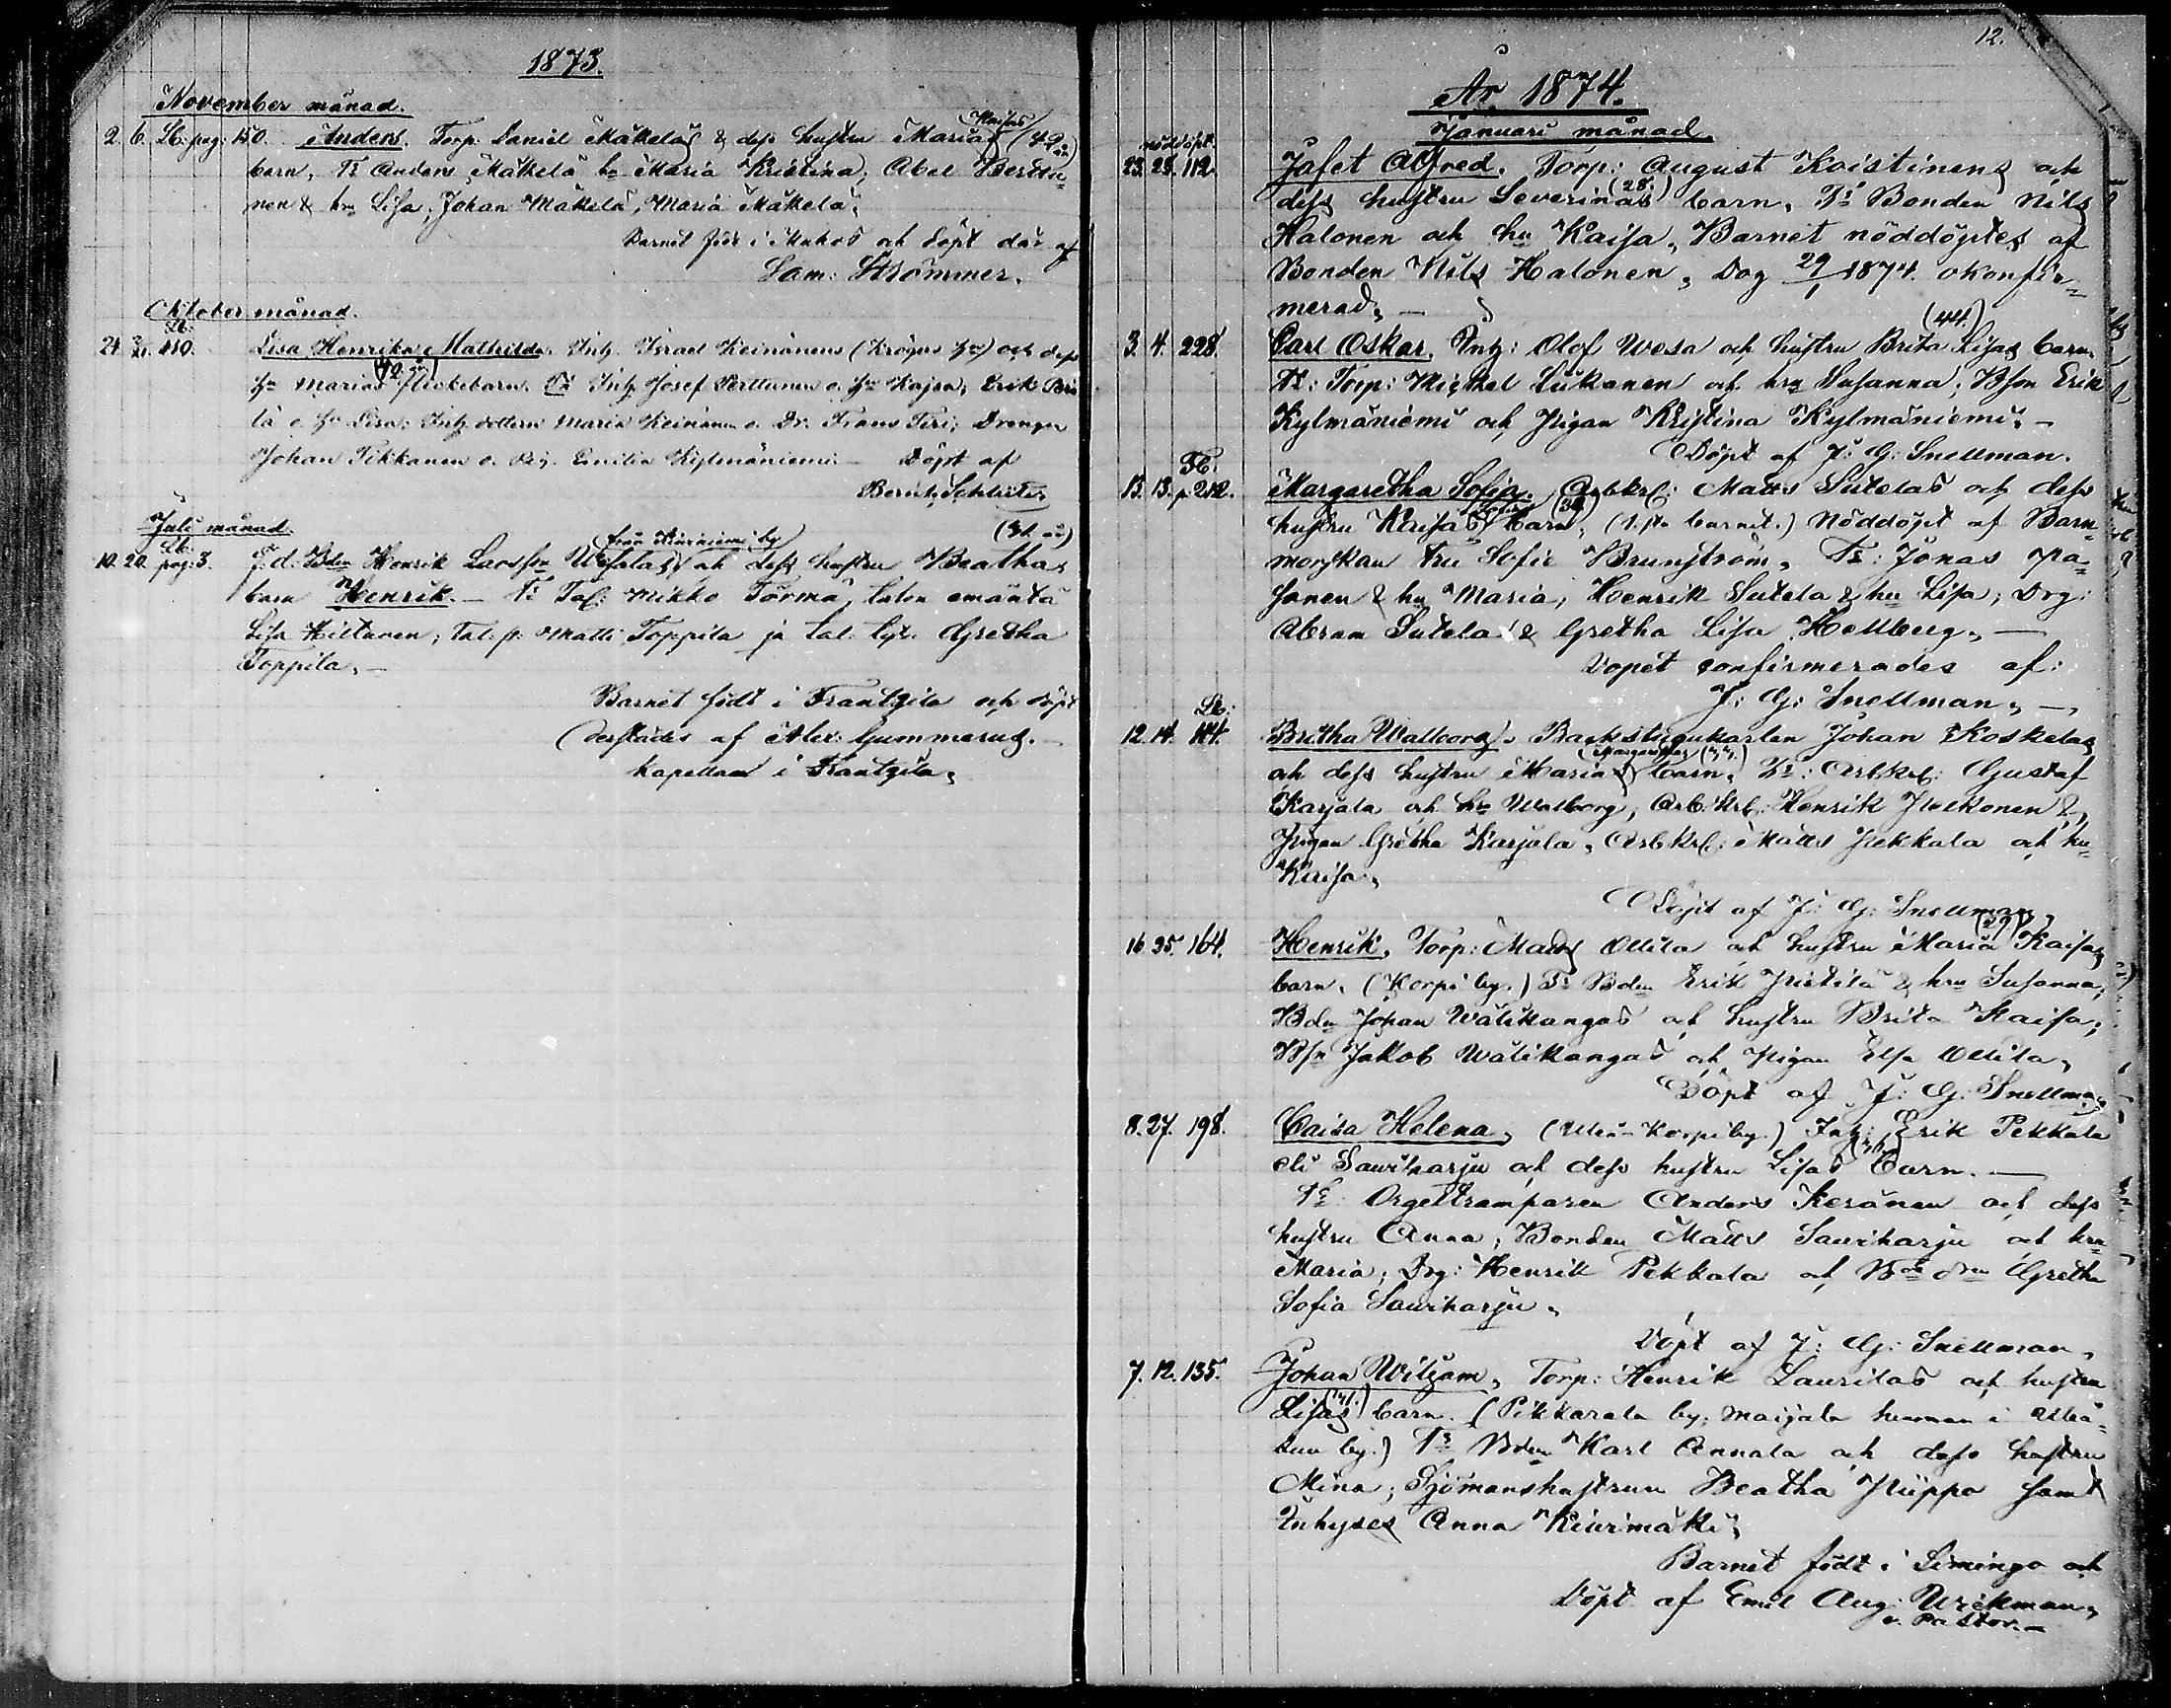 1873.
November månad.
2. 6. Lb. pag. 150. Anders. Torp. Daniel Mäkeläs & dess hustru Maria Kaisas (42 år)
barn, Fr Anders Mäkelä hu Maria Kristina, Abel Berttu-
nen & hru Lisa, Johan Mäkelä, Maria Mäkelä.
Barnet födt i Muhos och döpt där af
Sam. Strömmer.
Oktober månad.
Lb:
Lisa Henrika Mathilda. Inh. Israel Keinänens (Krögars) och dess
hu Marias (42 år) flickebarn. Fr Inh. Josef Perttunen o. hu Kajsa, Erik
o. hu Lisa; Inh. dottern Maria Keinänen o. Dr. Frans Piri; Drengen
Johan Tikkanen o. Pig. Emilia Kylmäniemi. Döpt af
Juli månad.
Lb. (31 år)
10. 20. pag. 3. f.d. Bden Henrik Larsson Wesalas (från by) och dess hustru Beathas
barn Henrik. – Fr Tal. Mikko Törmä, talon emäntä
Lisa Hiltunen; Tal. p. Matti Toppila ja tal. tyt. Gretha
Toppila. –
Barnet födt i Frantzila och döpt
derstädes af Alex: Gummerus.
Kapellan i Frantzila.
12.
År 1874.
Januari månad.
nöddöpt.
23. 28. 112. Jafet Alfred. Torp: August Koistinens och
dess hustru Severinas (28.) barn. Fr Bonden Nils
Halonen och hu Kaisa. Barnet nöddöptes af
Bonden Nils Halonen. Dog 29/1 1874. okonfir-
merad. –
3. 4. 228. Carl Oskar. Inh: Olof Wesa och hustru Brita Lisas (44.) barn.
Fr: Torp: Michel Lukanen och hru Susanna; Bson Erik
Kylmäniemi och pigan Kristina Kylmäniemi. –
Döpt af J. G. Snellman.
13. 13. p. 212. Margaretha Sofia. Arbkrl: Matts Sutelas och dess
hustru Kaisas barn. (1sta barnet.) Nöddöpt af Barn-
morskan fru Sofie Brunström. Fr: Jonas Pa-
sanen & hu Maria, Henrik Sutela & hu Lisa; Drg:
Abram Sutela & Gretha Lisa Hellberg. –
Dopet confirmerades af:
J: G: Snellman. –
Lb:
12. 14. 114. Britha Wallborg. Backstugukarlen Johan Koskelas
och dess hustru Maria Margarethas barn. Fr: Arbkrl: Gustaf
Karjala och hu Walborg, Arb. krl: Henrik Pelkonen &
Pigan Gretha Karjala, Arbkrl: Matts Pekkala och hu
Kaisa.
Döpt af J: G: Snellman.
16. 25. 164. Henrik. Torp: Matts Ollila och hustru Maria Kaisas (29)
barn. (Korpi by.) Fr Bden Erik Pietilä & hru Susanna;
Bden Johan Wälikangas och hustru Brita Kaisa;
Bsn Jakob Wälikangas och Pigan Elsa Ollila.
Döpt af J: G: Snellman.
8. 27. 198. Caisa Helena. (Uleå-Korpi by.) Inh: Erik Pekkala
eli Sauviharju och dess hustru Lisas barn. –
Fr: Orgeltramparen Anders Keränen och dess
hustru Anna; Bonden Matts Sauviharju och hru
Maria; Drg: Henrik Pekkala och Gretha
Sofia Sauviharju.
Döpt af J: G: Snellman.
7. 12. 135. Johan Wiljam. Torp: Henrik Laurilas och hustru
Lisas barn. (Pikkarala by; Maijala hemman i Uleå-
suu by.) Fr Bden Karl Annala och dess hustru
Mina; Sjömanshustrun Beatha Piippo samt
Inhyses Anna Kiurimäki.
Barnet födt i Limingo och
Döpt af Emil Aug: Wickman.
v. Pastor. –